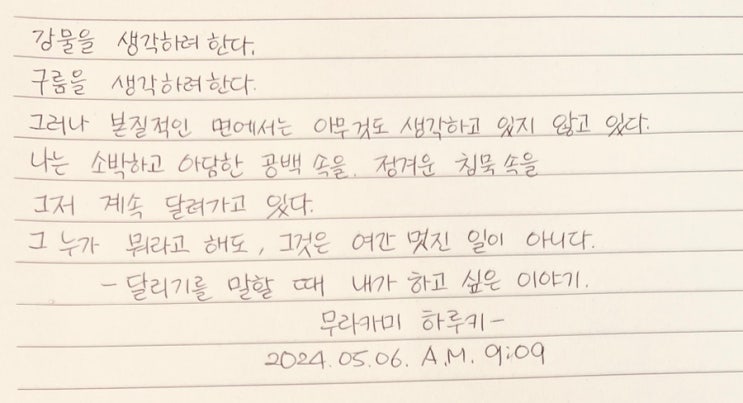 강물을 생각하려 한다.
구름을 생각하려 한다.
그러나 본질적인 면에서는 아무것도 생각하고 있지 않고 있다.
나는 소박하고 아담한 공백 속을, 정겨운 침묵 속을
그저 계속 달려가고 있다.
그 누가 뭐라고 해도, 그것은 여간 멋진 일이 아니다.
- 달리기를 말할 때 내가 하고 싶은 이야기.
무라카미 하루키-
2024.05.06. A.M. 9:09